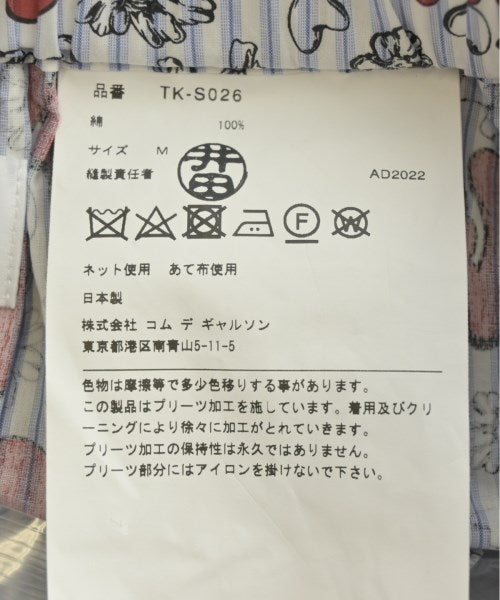 品番 TK-S026
綿 100%
サイズ M
縫製責任者 井田 AD2022
F W
ネット使用 あて布使用
日本製
株式会社 コム デ ギャルソン
東京都港区南青山5-11-5
色物は摩擦等で多少色移りする事があります。
この製品はプリーツ加工を施しています。着用及びクリ
ーニングにより徐々に加工がとれていきます。
プリーツ加工の保持性は永久ではありません。
プリーツ部分にはアイロンを掛けないで下さい。